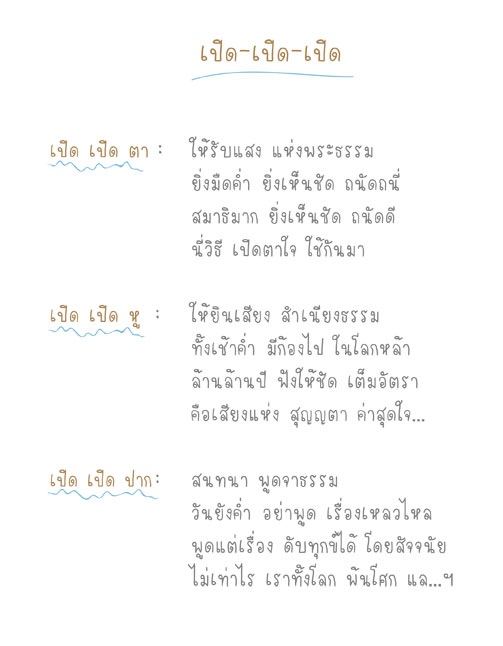 เปิด-เปิด-เปิด
เปิด เปิด ตา : ให้รับแสง แห่งพระธรรม
ยิ่งมืดค่ำ ยิ่งเห็นชัด ถนัดถนี่
สมาธิมาก ยิ่งเห็นชัด ถนัดดี
นี่วิธี เปิดตาใจ ใช้กันมา
เปิด เปิด หู : ให้ยินเสียง สำเนียงธรรม
ทั้งเช้าค่ำ มีก้องไป ในโลกหล้า
ล้านล้านปี ฟังให้ชัด เต็มอัตรา
คือเสียงแห่ง สุญญตา ค่าสุดใจ...
เปิด เปิด ปาก: สนทนา พูดจาธรรม
วันยังค่ำ อย่าพูด เรื่องเหลวไหล
พูดแต่เรื่อง ดับทุกข์ได้ โดยสัจจนัย
ไม่เท่าไร เราทั้งโลก พ้นโศก แล...ฯ